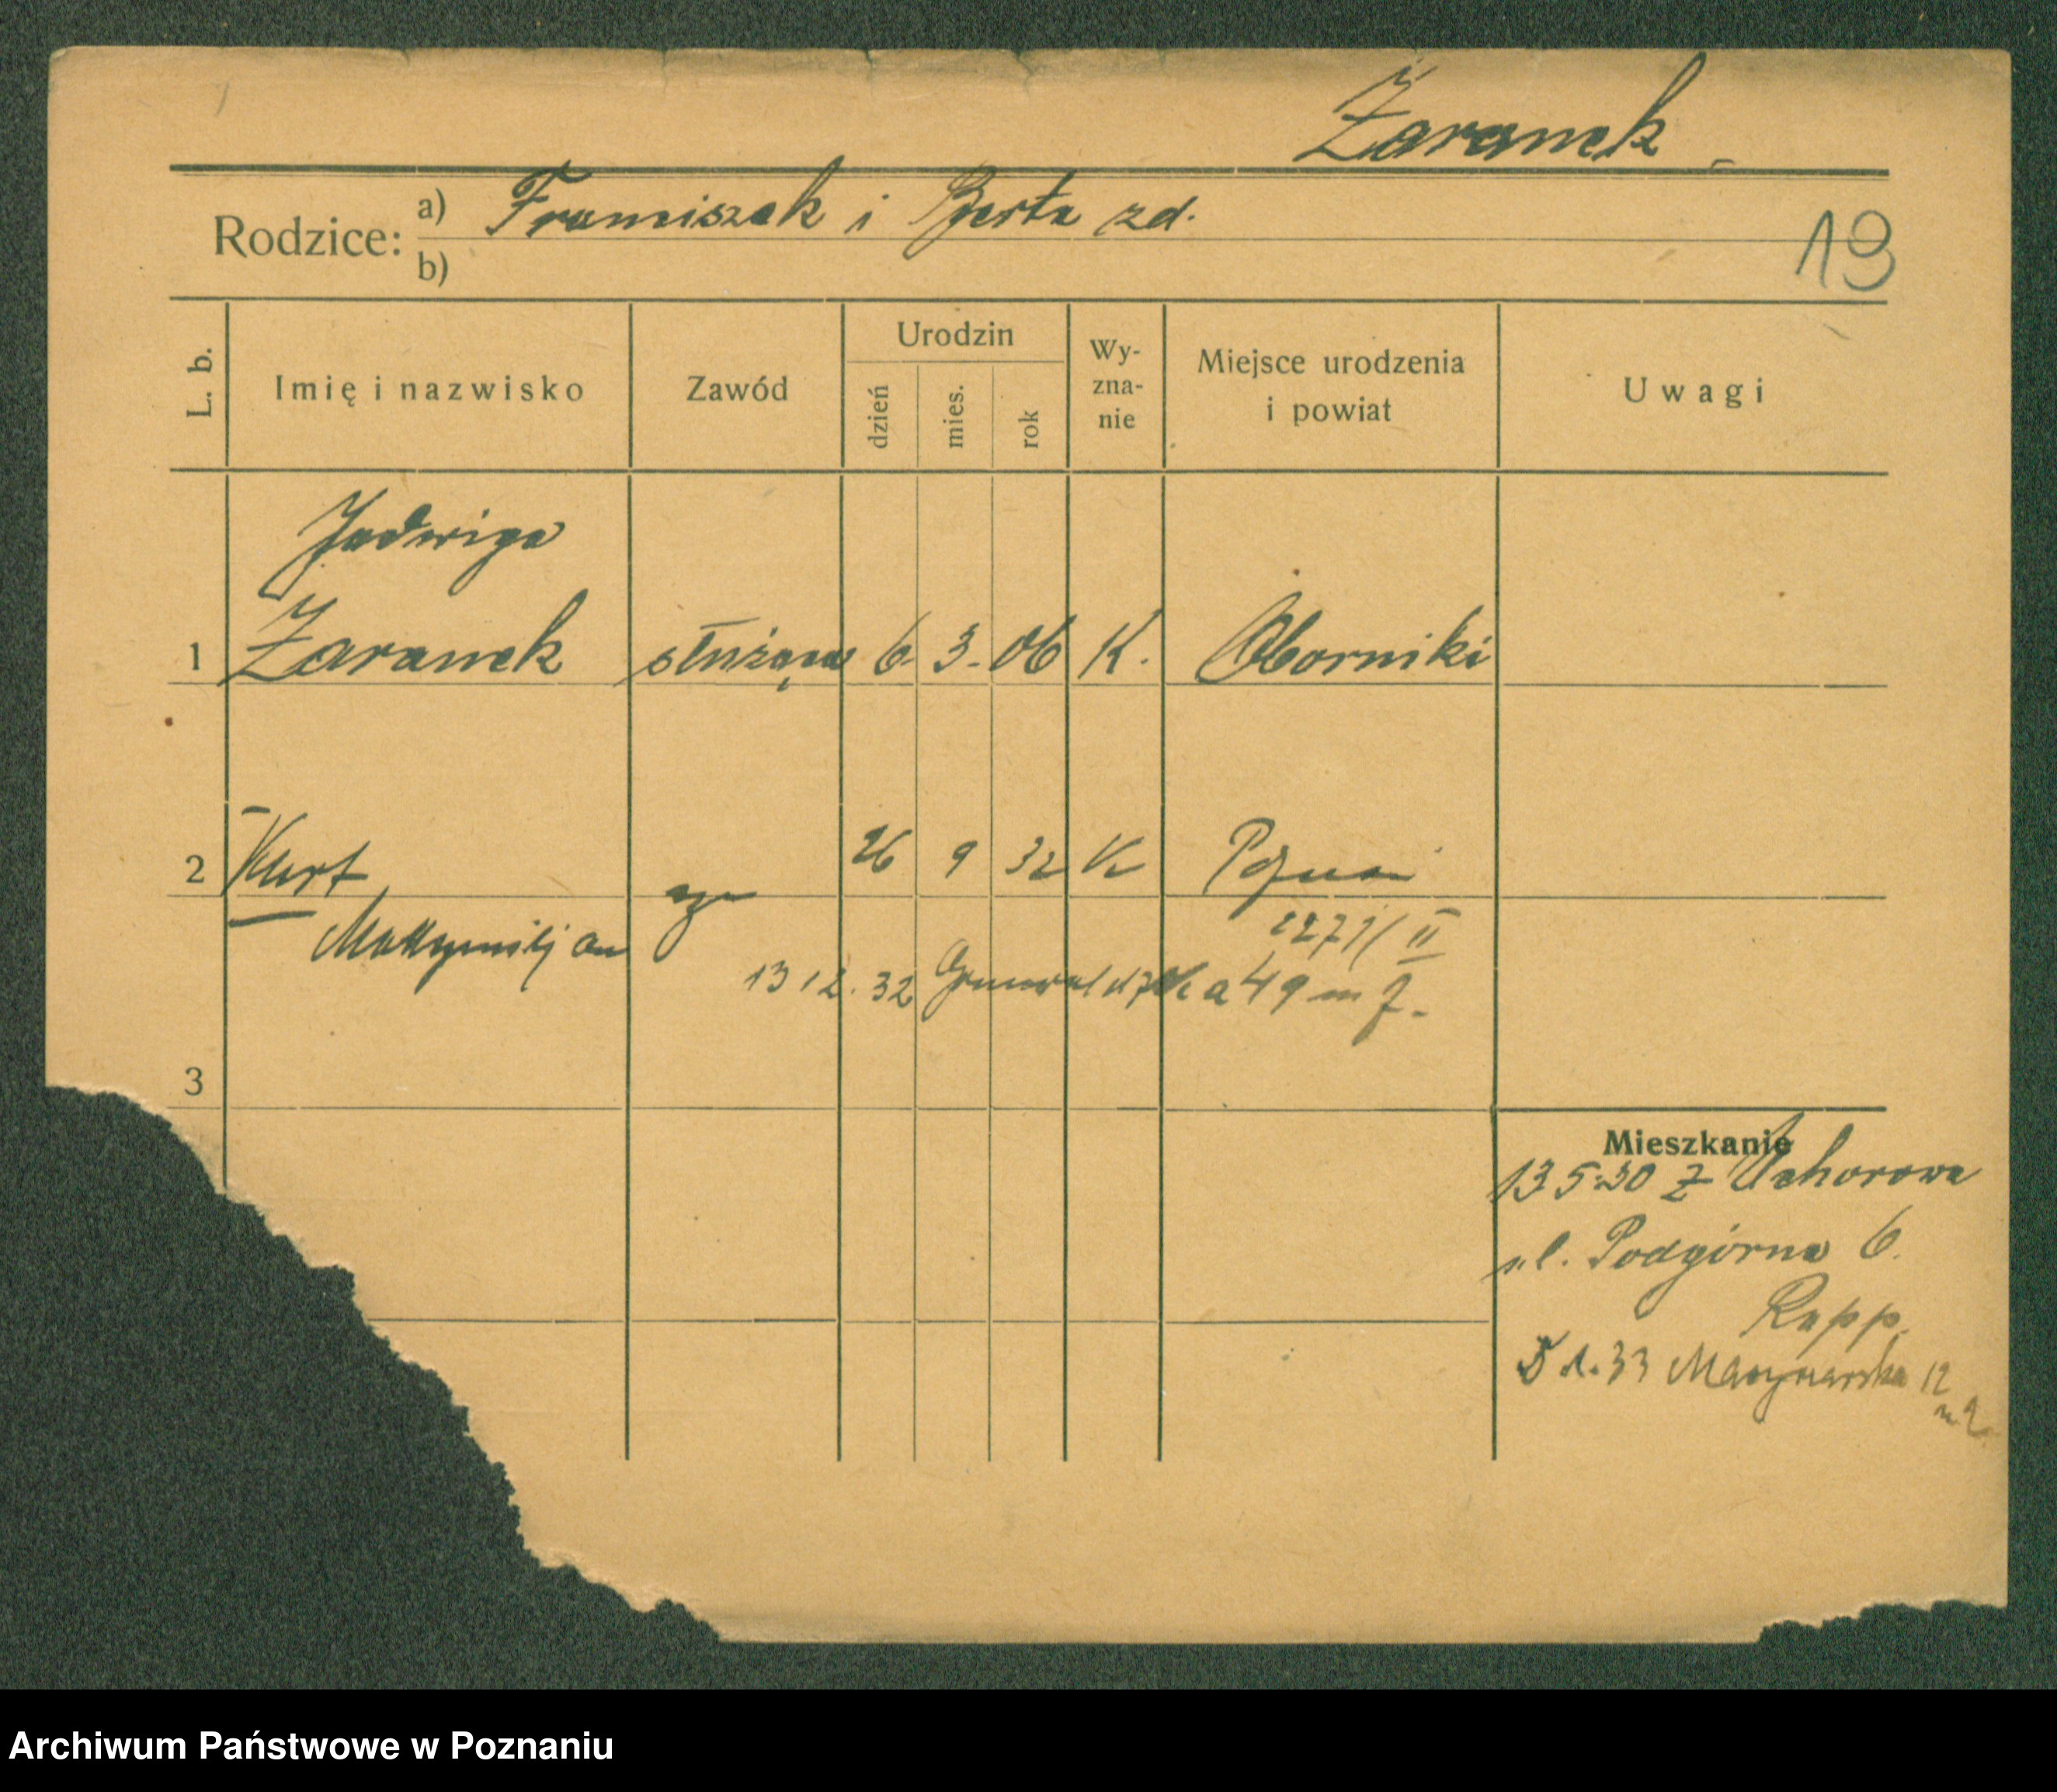 Żaranek
Rodzice: a) Franciszek i Berta zd.
b)
19
L. b. Imię i nazwisko Zawód Urodzin dzień mies. rok Wy-zna-nie Miejsce urodzenia i powiat Uwagi
Jadwiga
1 Żaranek służąca 6. 3. 06 K. Oborniki
2 Kurt 26 9 32 K Poznań
Maksymiljan
2271/II
13 12. 32 Grunwaldzka 49 m 7.
3
Mieszkanie
13 5.30 z Uchorowa
ul. Podgórna 6.
Rapp.
5 1. 33 Masztalarska 12
m 2
Archiwum Państwowe w Poznaniu